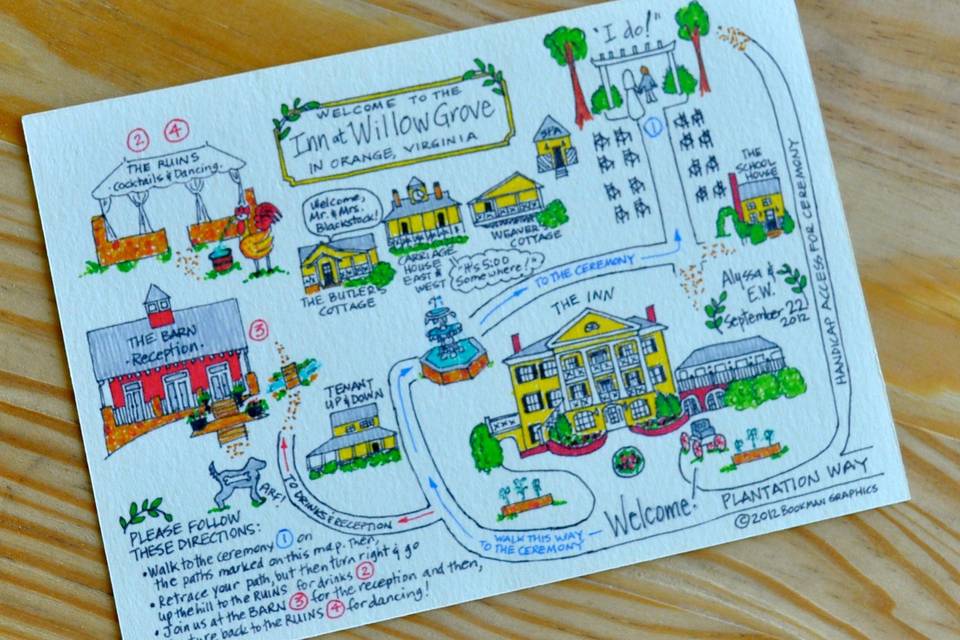 "I do!"
WELCOME TO THE
Inn at Willow Grove
IN ORANGE, VIRGINIA
2 4
THE RUINS
Cocktails & Dancing
SPA
1
THE
SCHOOL
HOUSE
HANDICAP ACCESS FOR CEREMONY
Welcome,
Mr. & Mrs.
Blackstock!
THE BUTLER'S
COTTAGE
CARRIAGE
HOUSE
EAST &
WEST
WEAVER
COTTAGE
"It's 5:00
Somewhere!"
TO THE CEREMONY
Alyssa &
E.W.
September 22
2012
THE INN
THE BARN
·Reception·
3
TENANT
UP & DOWN
ARF!
TO DRINKS & RECEPTION
WALK THIS WAY
TO THE CEREMONY
Welcome!
PLANTATION WAY
©2012 BOOKMAN GRAPHICS
PLEASE FOLLOW
THESE DIRECTIONS:
• Walk to the ceremony 1 on
the paths marked on this map. Then,
• Retrace your path, but then turn right & go
up the hill to the RUINS for drinks 2
• Join us at the BARN 3 for the reception and then,
back to the RUINS 4 for dancing!